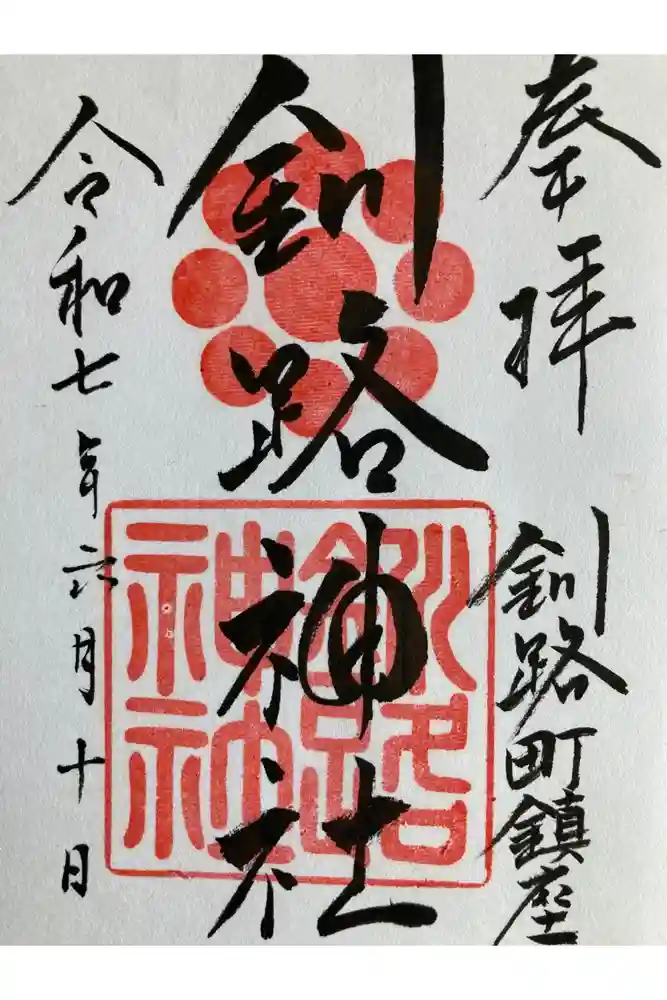 奉拝
釧路町鎮座
釧路神社
釧路
神社
令和七年六月十日